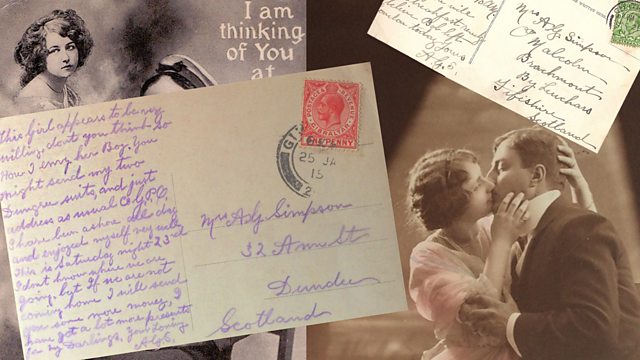 I am
thinking
of You
at
this Girl appears to be very
willing, dont you think so
How I envy her Boy. You
might send my two
Dungree suits, and just
address as usual C/o G.P.O.
I have been ashore all day
and enjoyed myself very well
This is Saturday night 23rd
I dont know where we are
going, but If we are not
coming home I will send
you some more money, I
have got a lot more presents
for my Darlings, Your Loving
POSTAGE & REVENUE
GIBRALTAR
ONE PENNY
25 JA
15
Mrs A G Simpson
32 Ann St
Dundee
Scotland
Mrs A G Simpson
Malcolm
Beachmount
By Leuchars
Fifeshire
Scotland